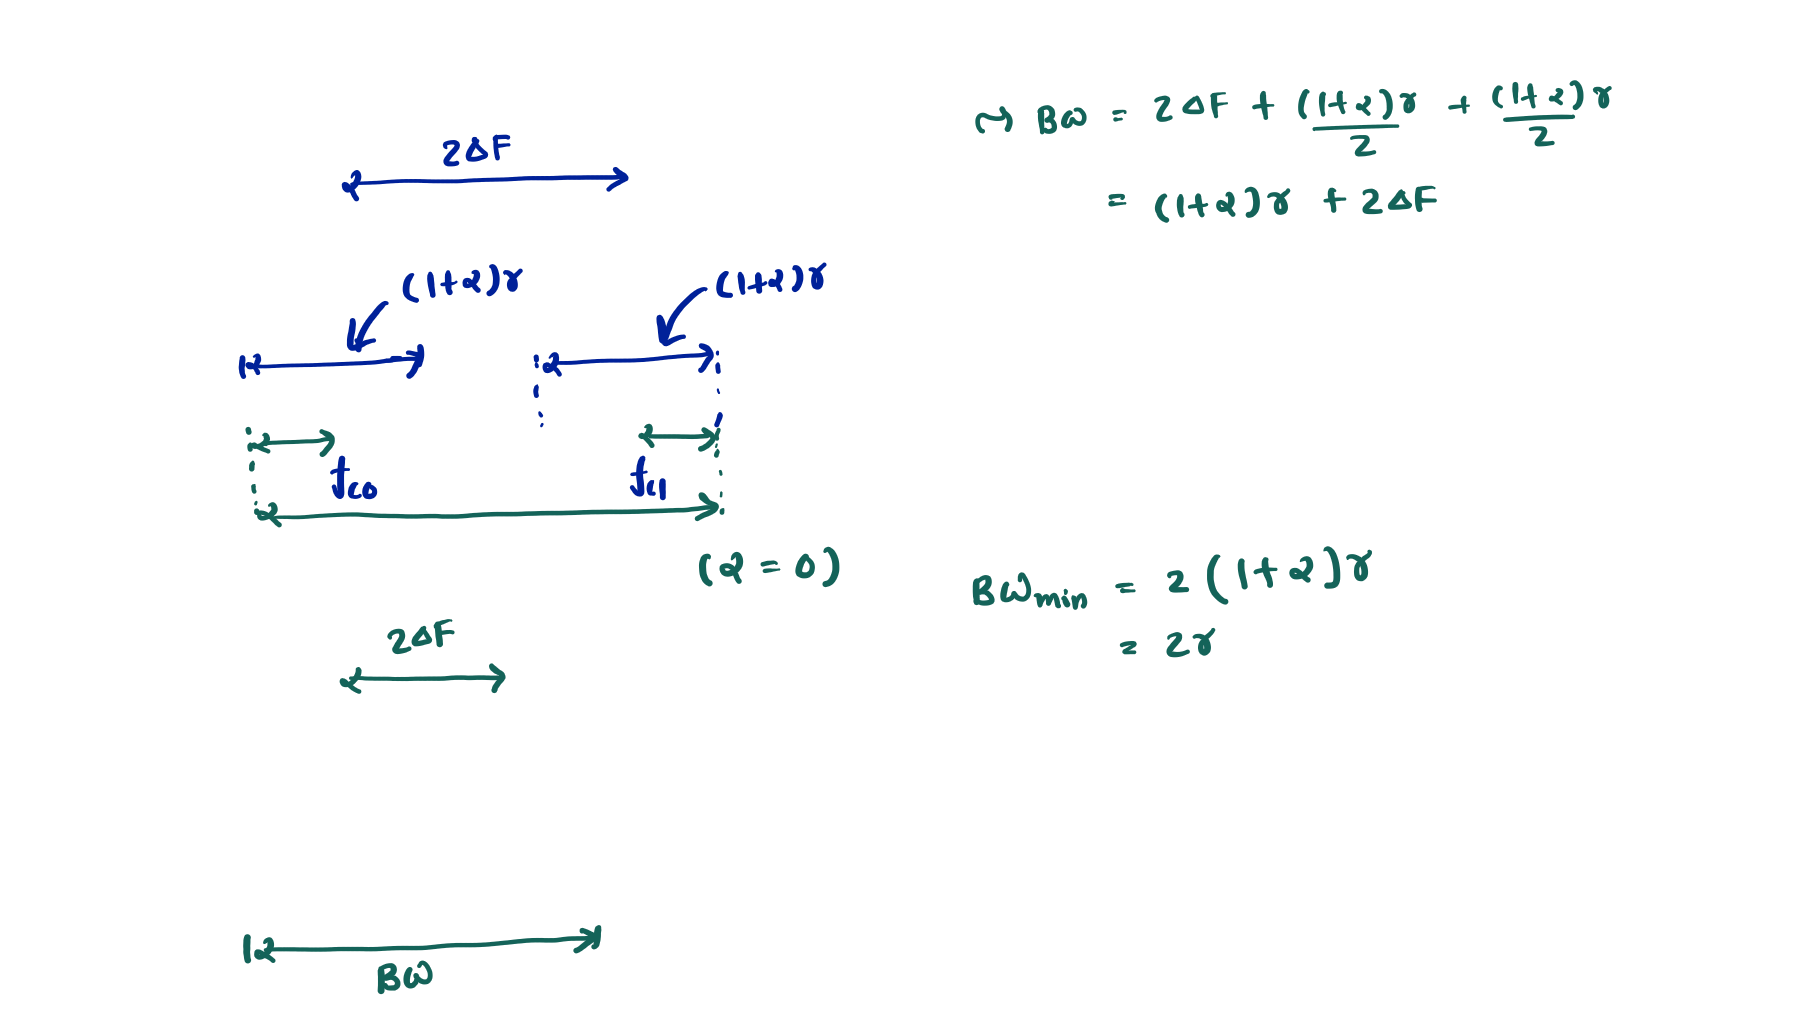 2ΔF
(1+α)r
(1+α)r
f_c0
f_c1
(α = 0)
2ΔF
BW
⤳ BW = 2ΔF + (1+α)r/2 + (1+α)r/2
= (1+α)r + 2ΔF
BW_min = 2(1+α)r
= 2r